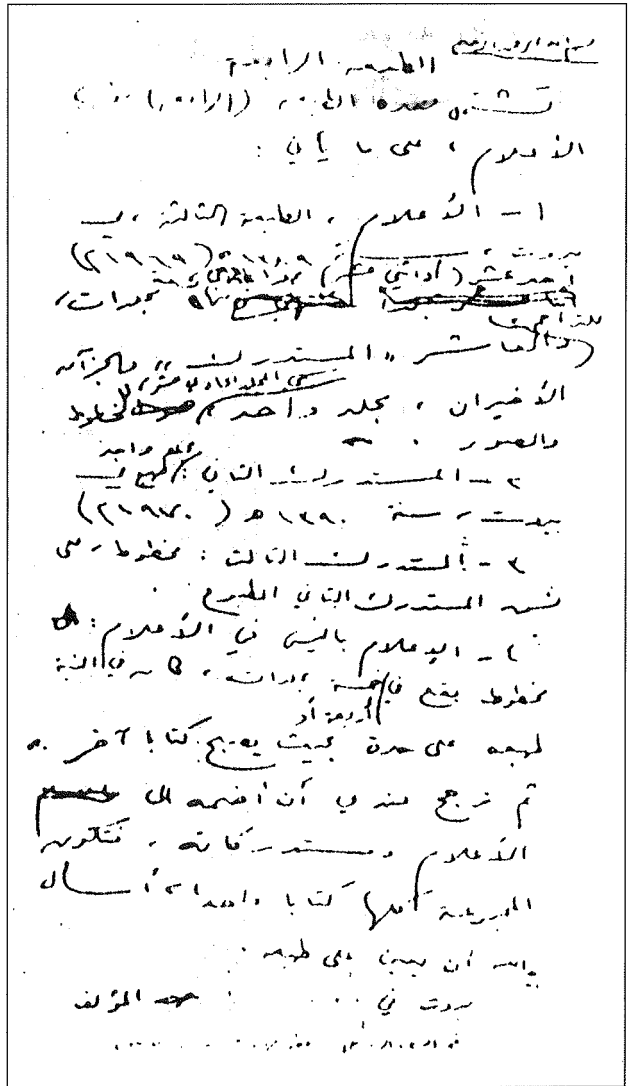 بسم الله الرحمن الرحيم
الطبعة الرابعة
تشتمل هذه الطبعة (الرابعة) من
الأعلام ، على ما يأتي :
١ - الأعلام ، الطبعة الثالثة ، في
بيروت ، ١٣٨٩ هـ (١٩٦٩ م)
أحد عشر (أو اثني عشر) مجلدات ،
للتراجم
والعاشر « المستدرك » والجزآن
الأخيران ، مجلد واحد ، للخطوط
والصور .
٢ - المستدرك الثاني : مجلد واحد طبع في
بيروت ، سنة ١٣٩٠ هـ (١٩٧٠ م)
٣ - المستدرك الثالث : مخطوط ، على
نسق المستدرك الثاني المطبوع .
٤ - الإعلام بما ليس في الأعلام :
مخطوط يقع في أربعة أو خمسة مجلدات ، كان في النية
طبعه على حدة بحيث يصبح كتابا آخر .
ثم ترجح عندي أن أضمه إلى
الأعلام ومستدركاته ، فتتكون
المجموعة كلها كتابا واحدا أسأل
الله أن يعين على طبعه .
بيروت في . . المؤلف